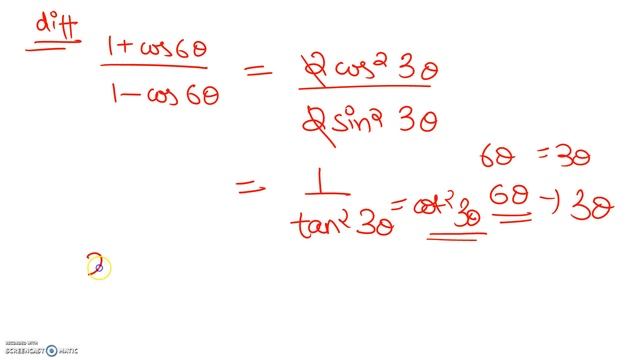 diff
1 + cos 6θ / 1 - cos 6θ = 2 cos² 3θ / 2 sin² 3θ
6θ = 3θ
= 1 / tan² 3θ = cot² 3θ
6θ → 3θ
RECORDED WITH
SCREENCAST-O-MATIC